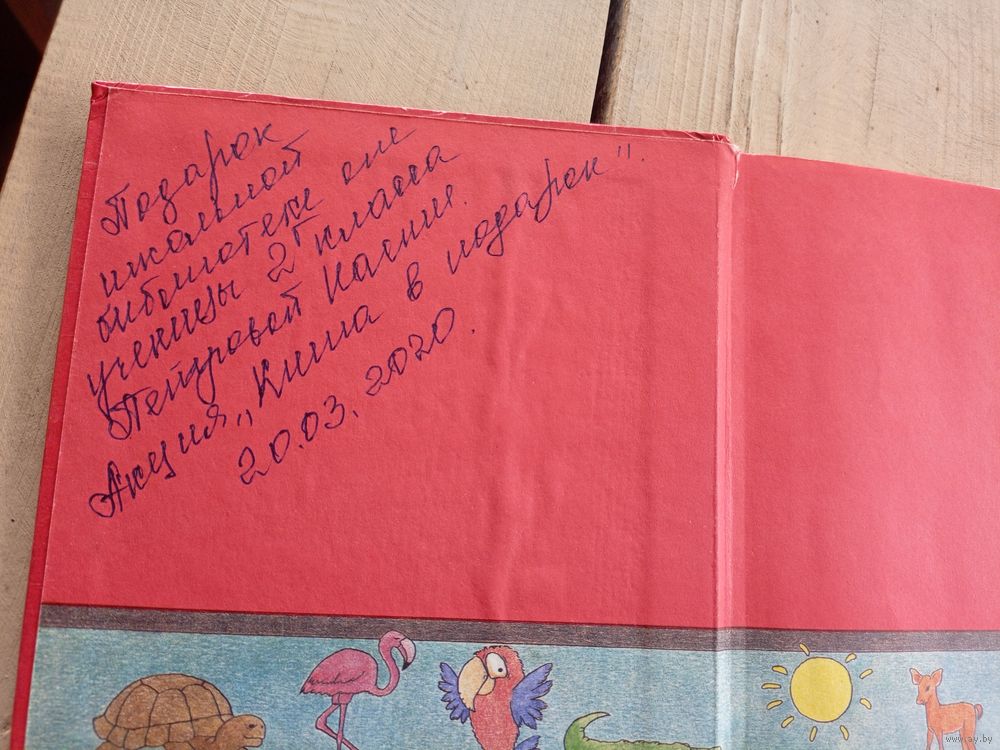 Подарок
школьной
библиотеке от
ученицы 2 "Г" класса
Петровой Насти.
Акция „Книга в подарок".
20.03.2020.
www.ay.by